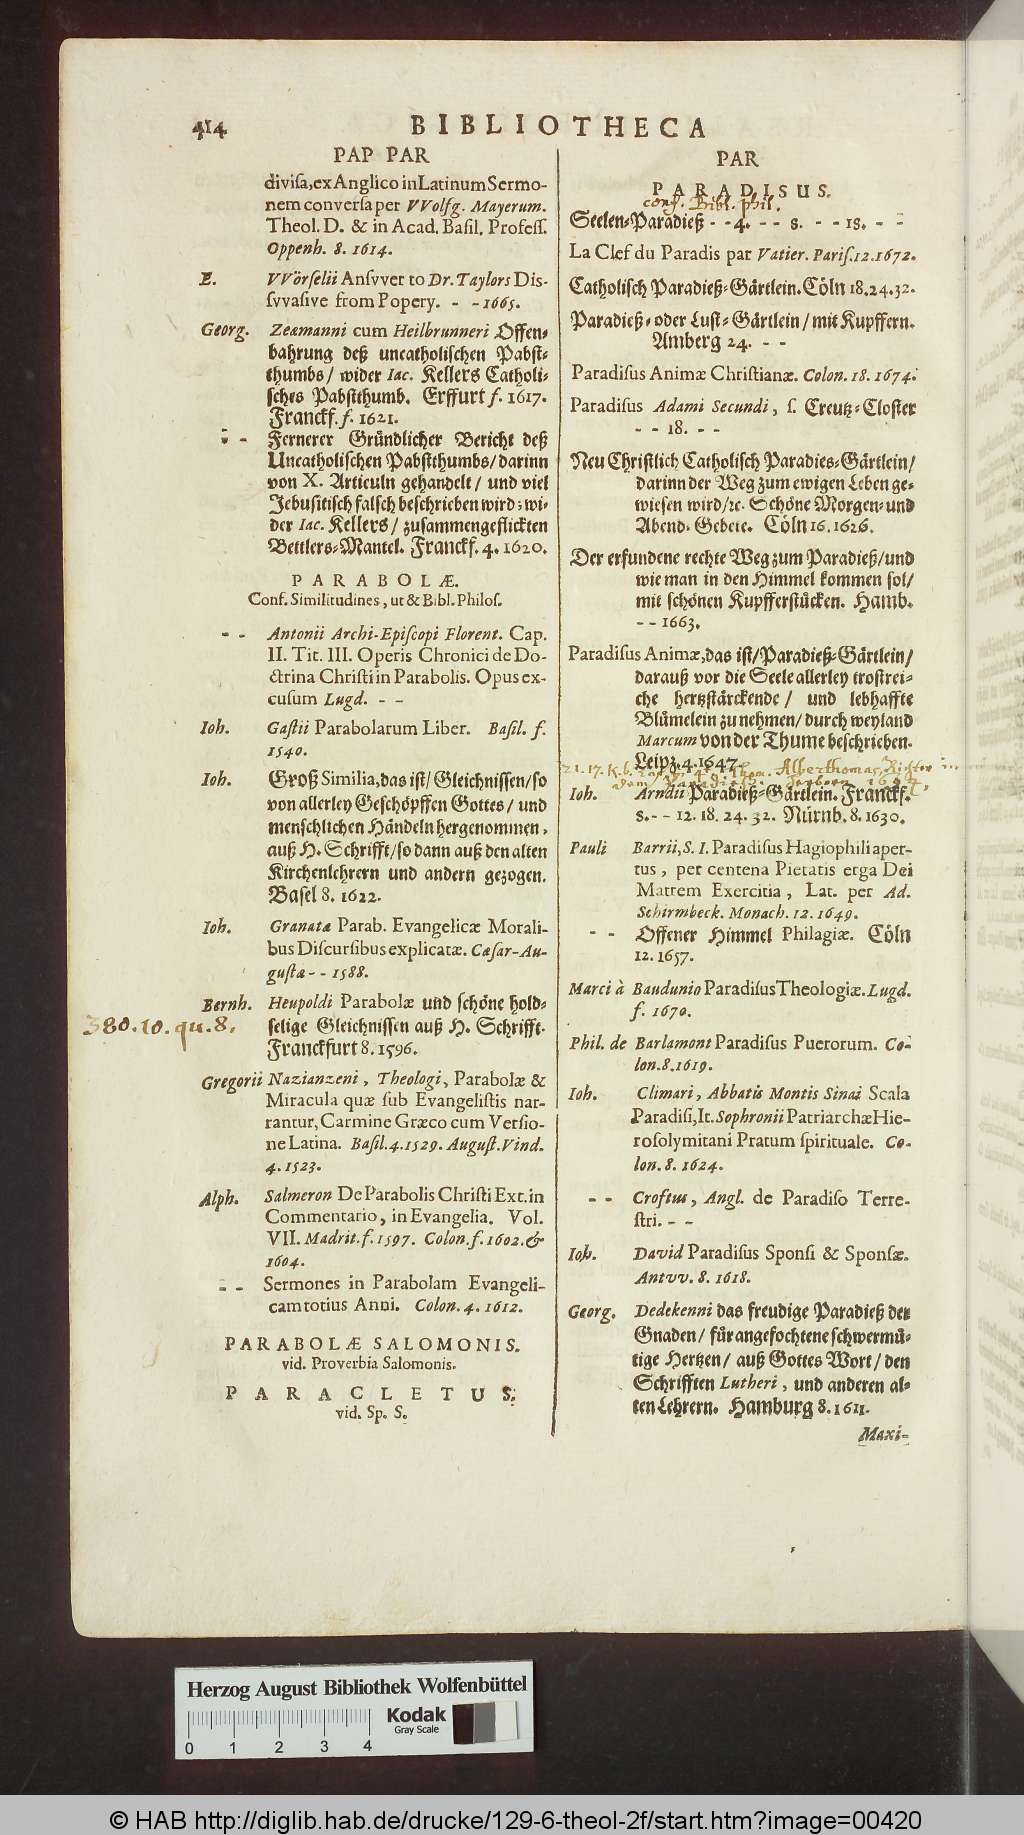 414
BIBLIOTHECA
PAP PAR
divisa, ex Anglico in Latinum Sermo-
nem conversa per VVolfg. Mayerum.
Theol. D. & in Acad. Basil. Profess.
Oppenh. 8. 1614.
E. VVörselii Ansvver to Dr. Taylors Dis-
svvasive from Popery. - - 1665.
Georg. Zeæmanni cum Heilbrunneri Offen-
bahrung deß uncatholischen Pabst-
thumbs / wider Iac. Kellers Catholi-
sches Pabstthumb. Erffurt f. 1617.
Franckf. f. 1621.
- - Fernerer Gründlicher Bericht deß
Uncatholischen Pabstthumbs / darinn
von X. Articuln gehandelt / und viel
Jebusitisch falsch beschrieben wird; wi-
der Iac. Kellers / zusammengeflickten
Bettlers-Mantel. Franckf. 4. 1620.
PARABOLÆ.
Conf. Similitudines, ut & Bibl. Philos.
- - Antonii Archi-Episcopi Florent. Cap.
II. Tit. III. Operis Chronici de Do-
ctrina Christi in Parabolis. Opus ex-
cusum Lugd. - -
Ioh. Gastii Parabolarum Liber. Basil. f.
1540.
Ioh. Groß Similia, das ist / Gleichnissen / so
von allerley Geschöpffen Gottes / und
menschlichen Händeln hergenommen,
auß H. Schrifft / so dann auß den alten
Kirchenlehrern und andern gezogen.
Basel 8. 1622.
Ioh. Granatæ Parab. Evangelicæ Morali-
bus Discursibus explicatæ. Cæsar-Au-
gustæ - - 1588.
Bernh. Heupoldi Parabolæ und schöne hold-
380.10.qu.8. selige Gleichnissen auß H. Schrifft.
Franckfurt 8. 1596.
Gregorii Nazianzeni, Theologi, Parabolæ &
Miracula quæ sub Evangelistis nar-
rantur, Carmine Græco cum Versio-
ne Latina. Basil. 4. 1529. August. Vind.
4. 1523.
Alph. Salmeron De Parabolis Christi Ext. in
Commentario, in Evangelia. Vol.
VII. Madrit. f. 1597. Colon. f. 1602. &
1604.
- - Sermones in Parabolam Evangeli-
cam totius Anni. Colon. 4. 1612.
PARABOLÆ SALOMONIS.
vid. Proverbia Salomonis.
PARACLETUS.
vid. Sp. S.
PAR
PARADISUS.
conf. Bibl. phil.
Seelen-Paradieß - - 4. - - 8. - - 18. - -
La Clef du Paradis par Vatier. Paris. 12. 1672.
Catholisch Paradieß-Gärtlein. Cöln 18. 24. 32.
Paradieß- oder Lust-Gärtlein / mit Kupffern.
Amberg 24. - -
Paradisus Animæ Christianæ. Colon. 18. 1674.
Paradisus Adami Secundi, s. Creutz-Closter
- - 18. - -
Neu Christlich Catholisch Paradies-Gärtlein /
darinn der Weg zum ewigen Leben ge-
wiesen wird / ꝛc. Schöne Morgen- und
Abend-Gebete. Cöln 16. 1626.
Der erfundene rechte Weg zum Paradieß / und
wie man in den Himmel kommen sol /
mit schönen Kupfferstücken. Hamb.
- - 1663.
Paradisus Animæ, das ist / Paradieß-Gärtlein /
darauß vor die Seele allerley trostrei-
che hertzstärckende / und lebhaffte
Blümelein zu nehmen / durch weyland
Marcum von der Thume beschrieben.
Leipz. 4. 1647.
Ioh. Arndii Paradieß-Gärtlein. Franckf.
8. - - 12. 18. 24. 32. Nürnb. 8. 1630.
Pauli Barrii, S. I. Paradisus Hagiophili aper-
tus, per centena Pietatis erga Dei
Matrem Exercitia, Lat. per Ad.
Schirmbeck. Monach. 12. 1649.
- - Offener Himmel Philagiæ. Cöln
12. 1657.
Marci à Baudunio Paradisus Theologiæ. Lugd.
f. 1670.
Phil. de Barlamont Paradisus Puerorum. Co-
lon. 8. 1619.
Ioh. Climari, Abbatis Montis Sinai Scala
Paradisi, It. Sophronii Patriarchæ Hie-
rosolymitani Pratum spirituale. Co-
lon. 8. 1624.
- - Croftus, Angl. de Paradiso Terre-
stri. - -
Ioh. David Paradisus Sponsi & Sponsæ.
Antvv. 8. 1618.
Georg. Dedekenni das freudige Paradieß der
Gnaden / für angefochtene schwermü-
tige Hertzen / auß Gottes Wort / den
Schrifften Lutheri, und anderen al-
ten Lehrern. Hamburg 8. 1611.
Maxi-
Herzog August Bibliothek Wolfenbüttel
Kodak
Gray Scale
0 1 2 3 4
© HAB http://diglib.hab.de/drucke/129-6-theol-2f/start.htm?image=00420